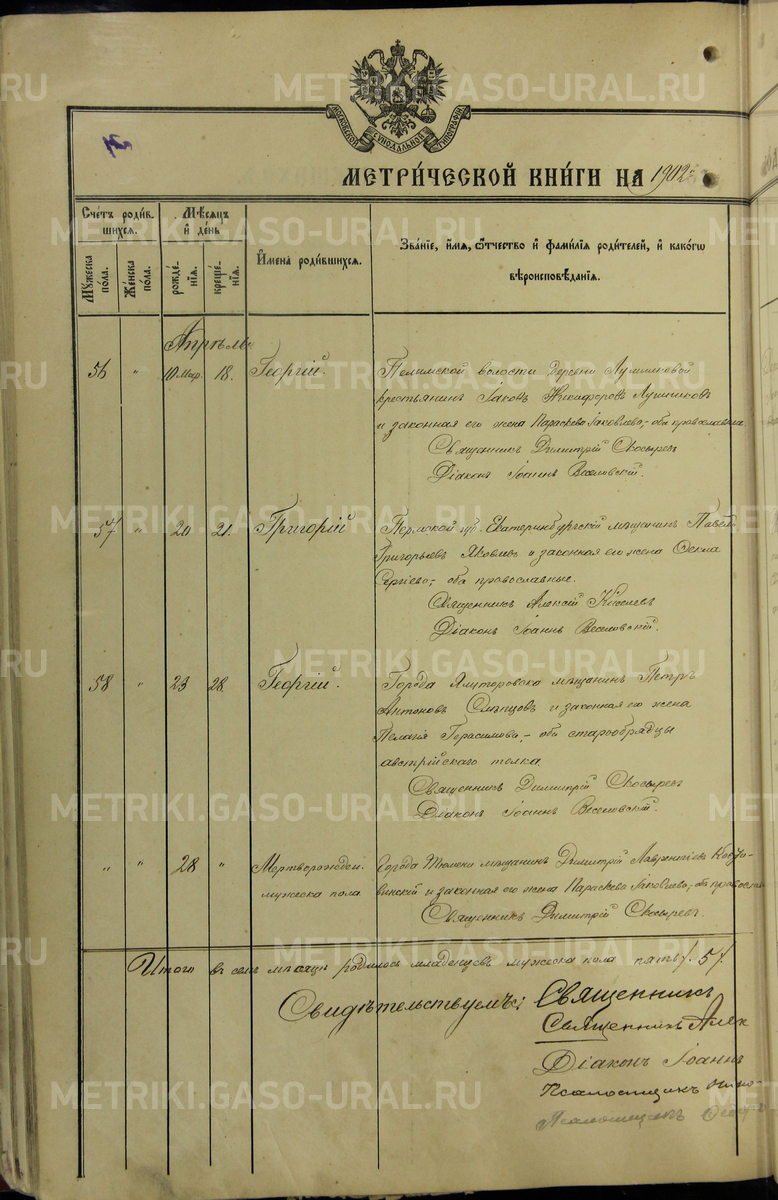 METRIKI.GASO-URAL.RU
МОСКОВСКОЙ СѴНОДАЛЬНОЙ ТИПОГРАФІИ
МЕТРИ́ЧЕСКОЙ КНИ́ГИ НА 1902 г.
Сче́тъ роди́вшихся.
Мѣ́сяцъ и де́нь
Имена̀ роди́вшихся.
Зва́нїе, и́мя, ѻ҆́тчество и҆ фами́лїя роди́телей, и҆ како́гѡ вѣроисповѣ́данїя.
Му́жеска по́ла.
Же́нска по́ла.
рожде́нїя.
креще́нїя.
Апрѣль
56 " 10 Мар. 18. Георгій. Пелымской волости деревни
крестьянинъ Іаковъ Никифоровъ Лушниковъ
и законная его жена Параскева Іаковлева,- оба православные.
Священникъ Димитрій
Діаконъ Іоаннъ Веселовскій.
57 " 20 21. Григорій Пермской губ. Екатеринбургскій мѣщанинъ Павелъ
Григорьевъ Яковлевъ и законная его жена Ѳекла
Сергіева,- оба православные.
Священникъ Алексій Киселевъ
Діаконъ Іоаннъ Веселовскій.
58 " 23 28. Георгій. Города Ялуторовска мѣщанинъ Петръ
Антоновъ Слѣпцовъ и законная его жена
Пелагія Герасимова,- оба старообрядцы
австрійскаго толка.
Священникъ Димитрій
Діаконъ Іоаннъ Веселовскій.
" " 28 " Мертворожден. Города Тюмени мѣщанинъ Димитрій Лаврентіевъ
мужеска пола и законная его жена Параскева Іаковлева,- оба правосл.
Священникъ Димитрій
Итого въ семъ мѣсяцѣ родилось младенцевъ мужеска пола пять /5/.
Свидѣтельствуемъ: Священникъ
Священникъ Алек
Діаконъ Іоаннъ
Псаломщикъ
Псаломщикъ